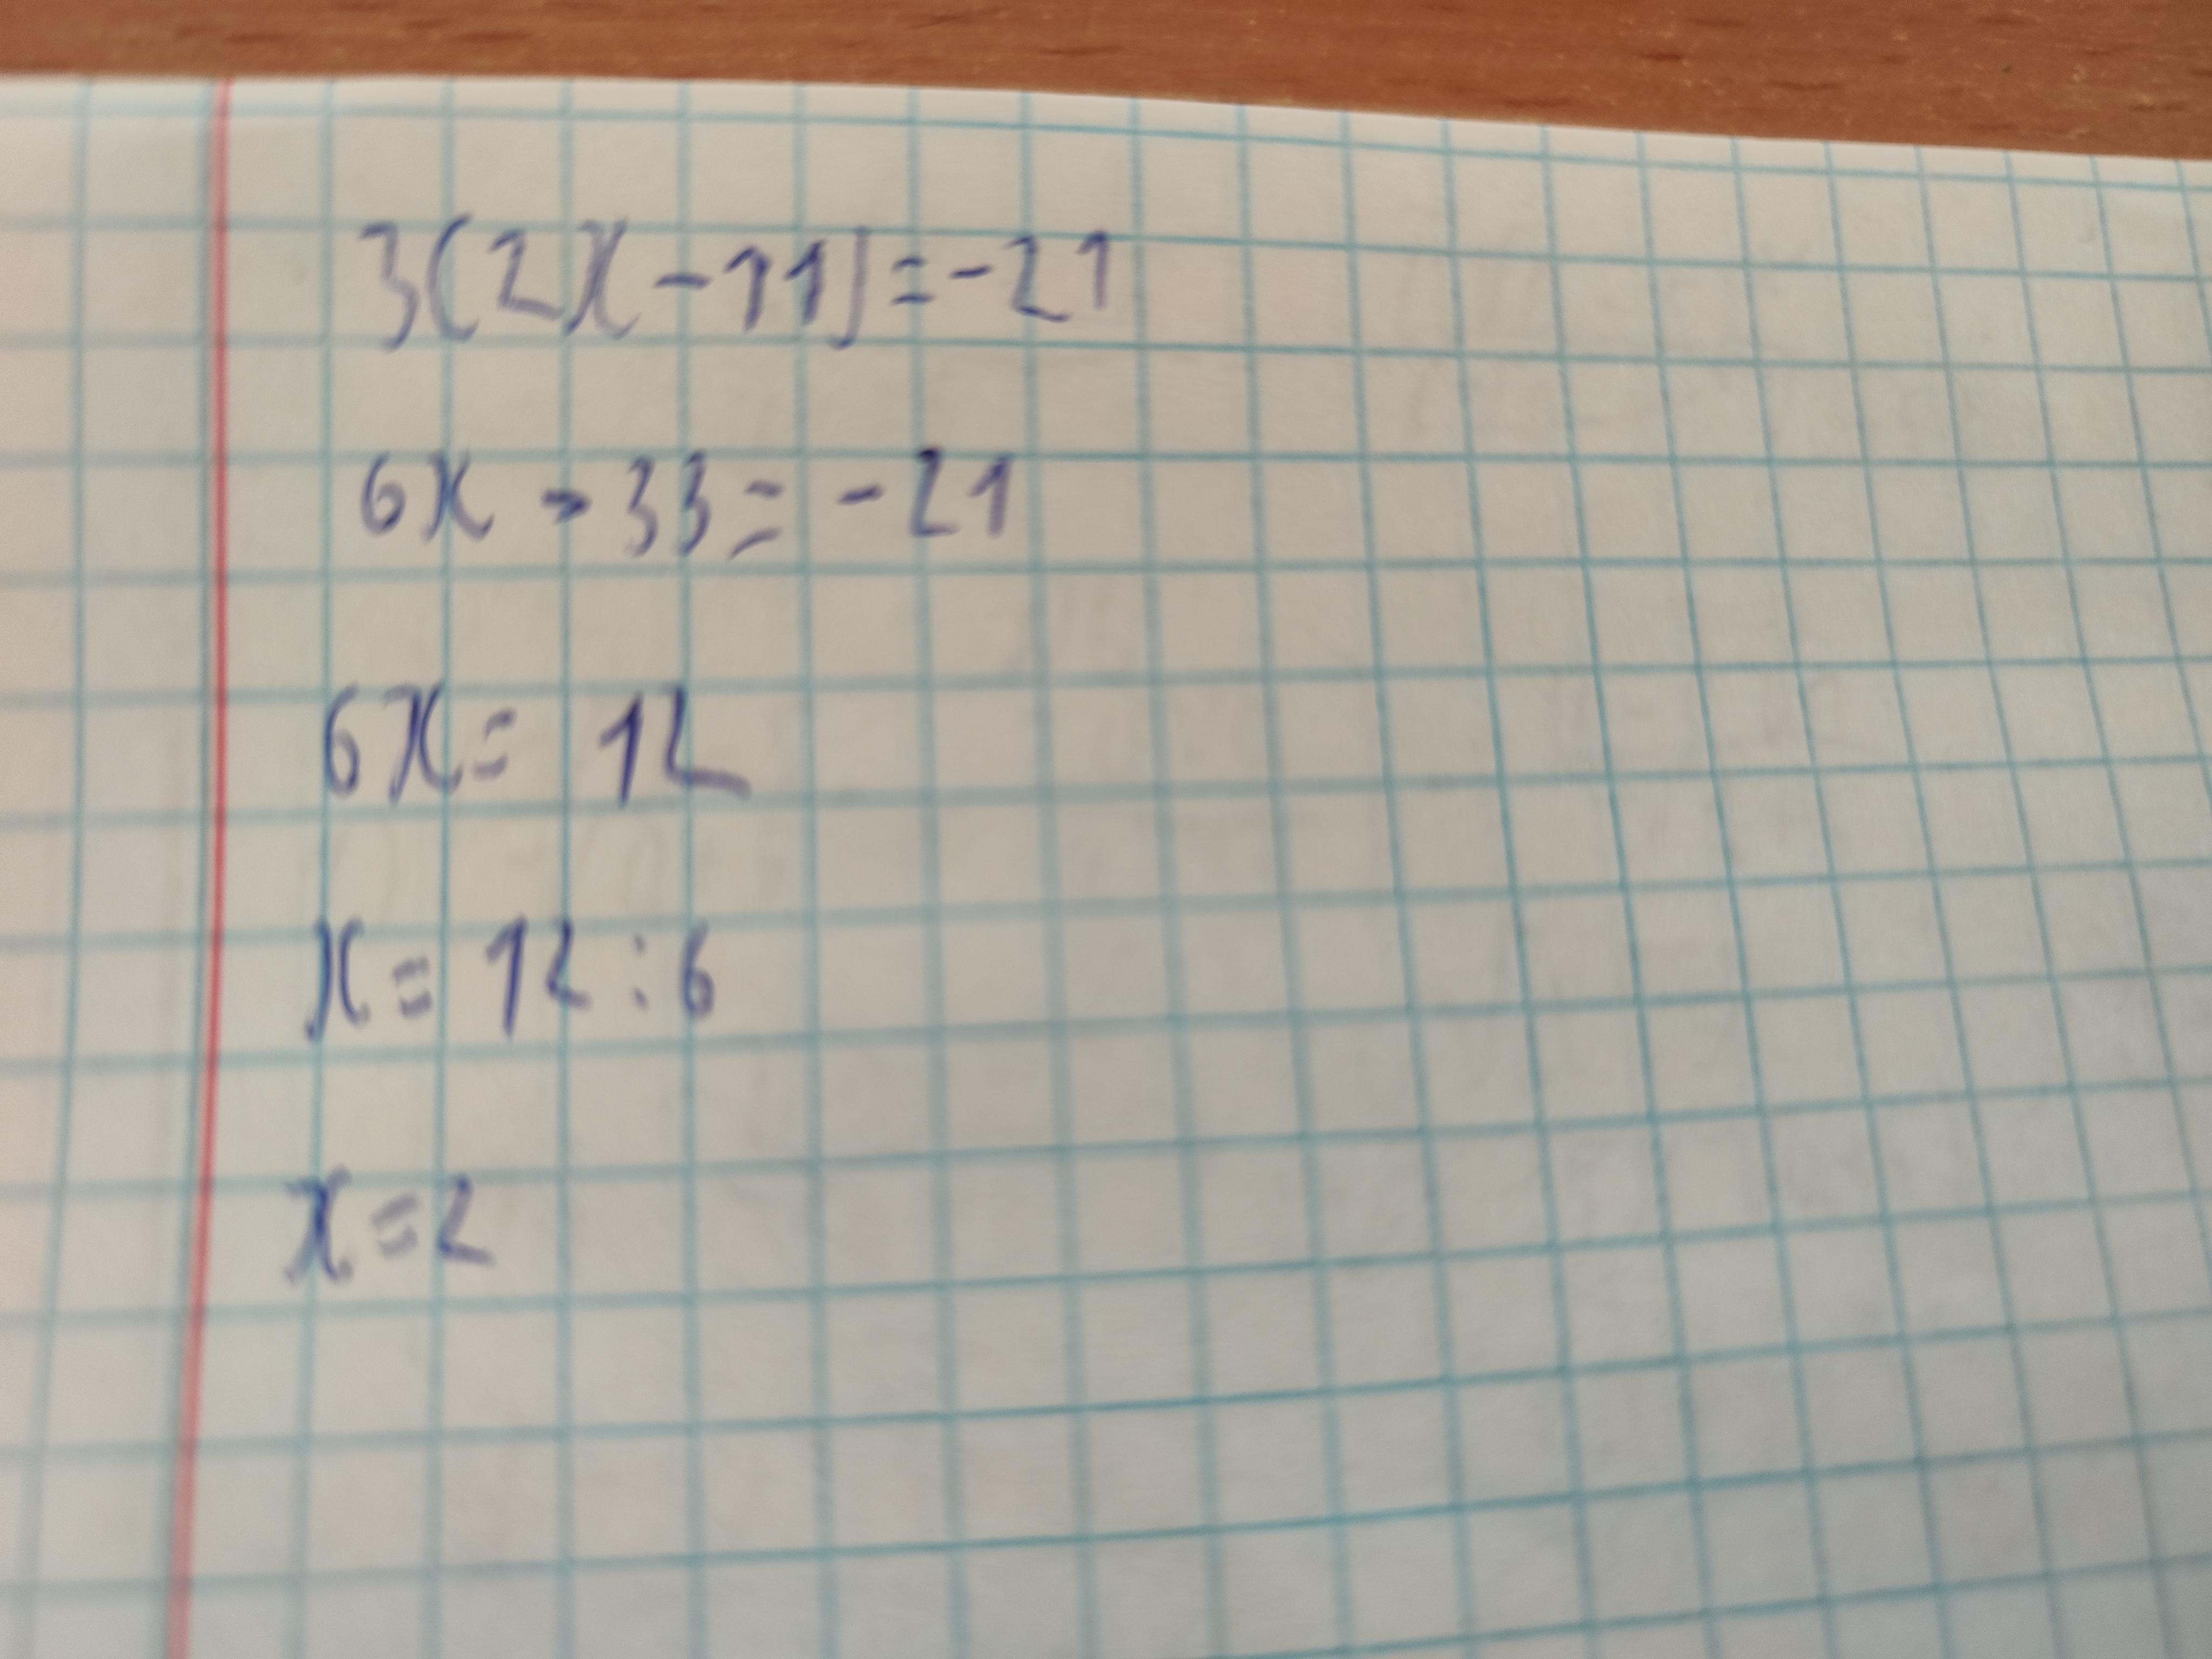 3(2x-11)=-21
6x-33=-21
6x=12
x=12:6
x=2